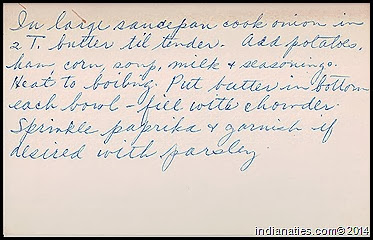 In large saucepan cook onion in
2 T. butter til tender. Add potatoes,
ham, corn, soup, milk & seasonings.
Heat to boiling. Put butter in bottom
each bowl - fill with chowder.
Sprinkle paprika & garnish if
desired with parsley.
indianaties.com©2014